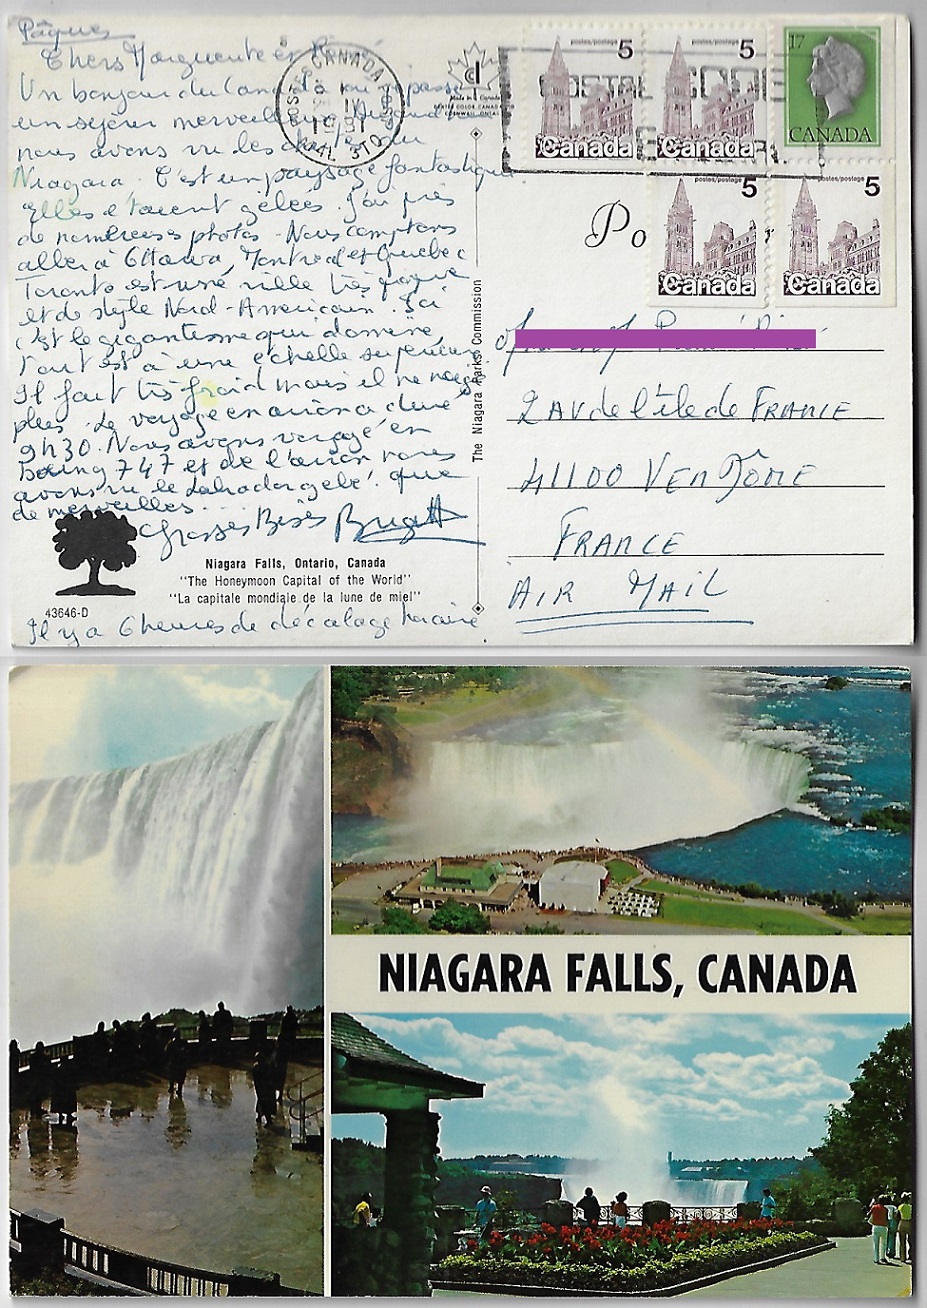 Pâques
Chers Marguerite et
Un bonjour du Canada où je passe
un séjour merveilleux. Quand
nous avons vu les chutes du
Niagara. C'est un paysage fantastique
Elles étaient gelées. J'ai pris
de nombreuses photos. Nous comptons
aller à Ottawa, Montréal et Québec
Toronto est une ville très
et de style Nord-Américain. Ici
c'est le gigantisme qui domine
Tout est à une échelle supérieure
Il fait très froid mais il ne neige
plus. Le voyage en avion a duré
9h30. Nous avons voyagé en
Boeing 747 et de l'avion nous
avons vu le Labrador gelé. que
de merveilles...
Grosses Bises
Niagara Falls, Ontario, Canada
"The Honeymoon Capital of the World"
"La capitale mondiale de la lune de miel"
43646-D
Il y a 6 heures de décalage horaire
CANADA
Made in Canada
The Niagara Parks Commission
postes/postage 5
Canada
postes/postage 5
Canada
17
CANADA
POSTAL CODE
Po
postes/postage 5
Canada
postes/postage 5
Canada
2 AV de l'île de FRANCE
41100 VENDÔME
FRANCE
AIR MAIL
NIAGARA FALLS, CANADA